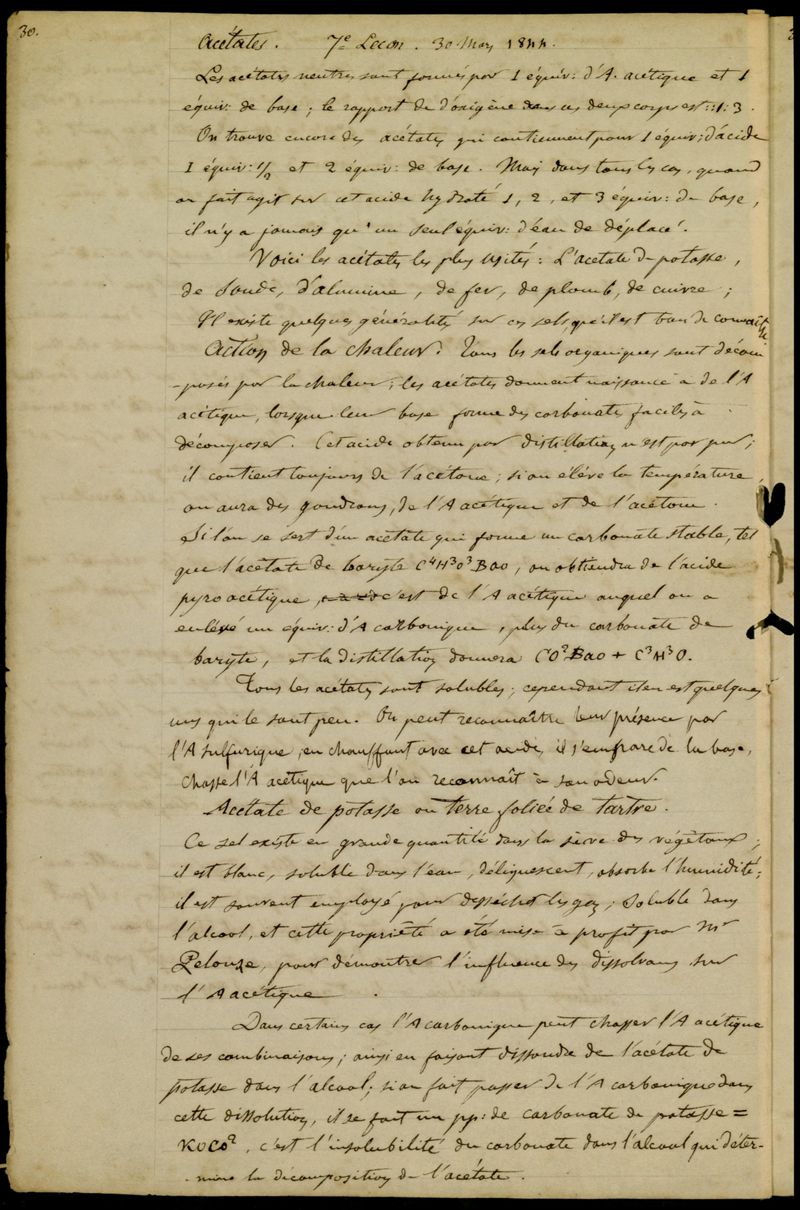 30.
Acétates. 7e Lecon. 30 Mars 1844.
Les acétates neutres sont formés par 1 équiv: d'A. acétique et 1
équiv: de base; le rapport de l'oxigène dans ces deux corps est :: 1 : 3.
On trouve encore des acétates qui contiennent pour 1 équiv: d'acide
1 équiv: 1/2 et 2 équiv: de base. Mais dans tous les cas, quand
on fait agir sur cet acide hydraté 1, 2, et 3 équiv: de base,
il n'y a jamais qu'un seul équiv: d'eau de déplacé.
Voici les acétates les plus usités: L'acetate de potasse,
de soude, d'alumine, de fer, de plomb, de cuivre;
Il existe quelques généralités sur ces sels qu'il est bon de connaître
Action de la chaleur. Tous les sels organiques sont décom
-posés par la chaleur; les acétates donnent naissance à de l'A
acétique, lorsque leur base forme des carbonates faciles à
décomposer. Cet acide obtenu par distillation n'est pas pur;
il contient toujours de l'acétone; si on élève la température,
on aura des goudrons, de l'A acétique et de l'acétone.
Si l'on se sert d'un acétate qui forme un carbonate stable, tel
que l'acétate de baryte C4H3O3BaO, on obtiendra de l'acide
pyroacétique, c'est de l'A acétique auquel on a
enlevé un équiv: d'A carbonique, plus du carbonate de
baryte, et la distillation donnera CO2BaO + C3H3O.
Tous les acétates sont solubles; cependant il en est quelques
uns qui le sont peu. On peut reconnaître leur présence par
l'A sulfurique, en chauffant avec cet acide, il s'empare de la base,
chasse l'A acétique que l'on reconnaît à son odeur.
Acétate de potasse ou terre foliée de tartre.
Ce sel existe en grande quantité dans la sève des végétaux;
il est blanc, soluble dans l'eau, déliquescent, absorbe l'humidité;
il est souvent employé pour dessécher les gaz; soluble dans
l'alcool, et cette propriété a été mise à profit par Mr
Pelouze, pour démontrer l'influence des dissolvans sur
l'A acétique.
Dans certains cas l'A carbonique peut chasser l'A acétique
de ses combinaisons; ainsi en faisant dissoudre de l'acétate de
potasse dans l'alcool; si on fait passer de l'A carbonique dans
cette dissolution, il se fait un pp: de carbonate de potasse =
KOCO2, c'est l'insolubilité du carbonate dans l'alcool qui déter-
-mine la décomposition de l'acétate.